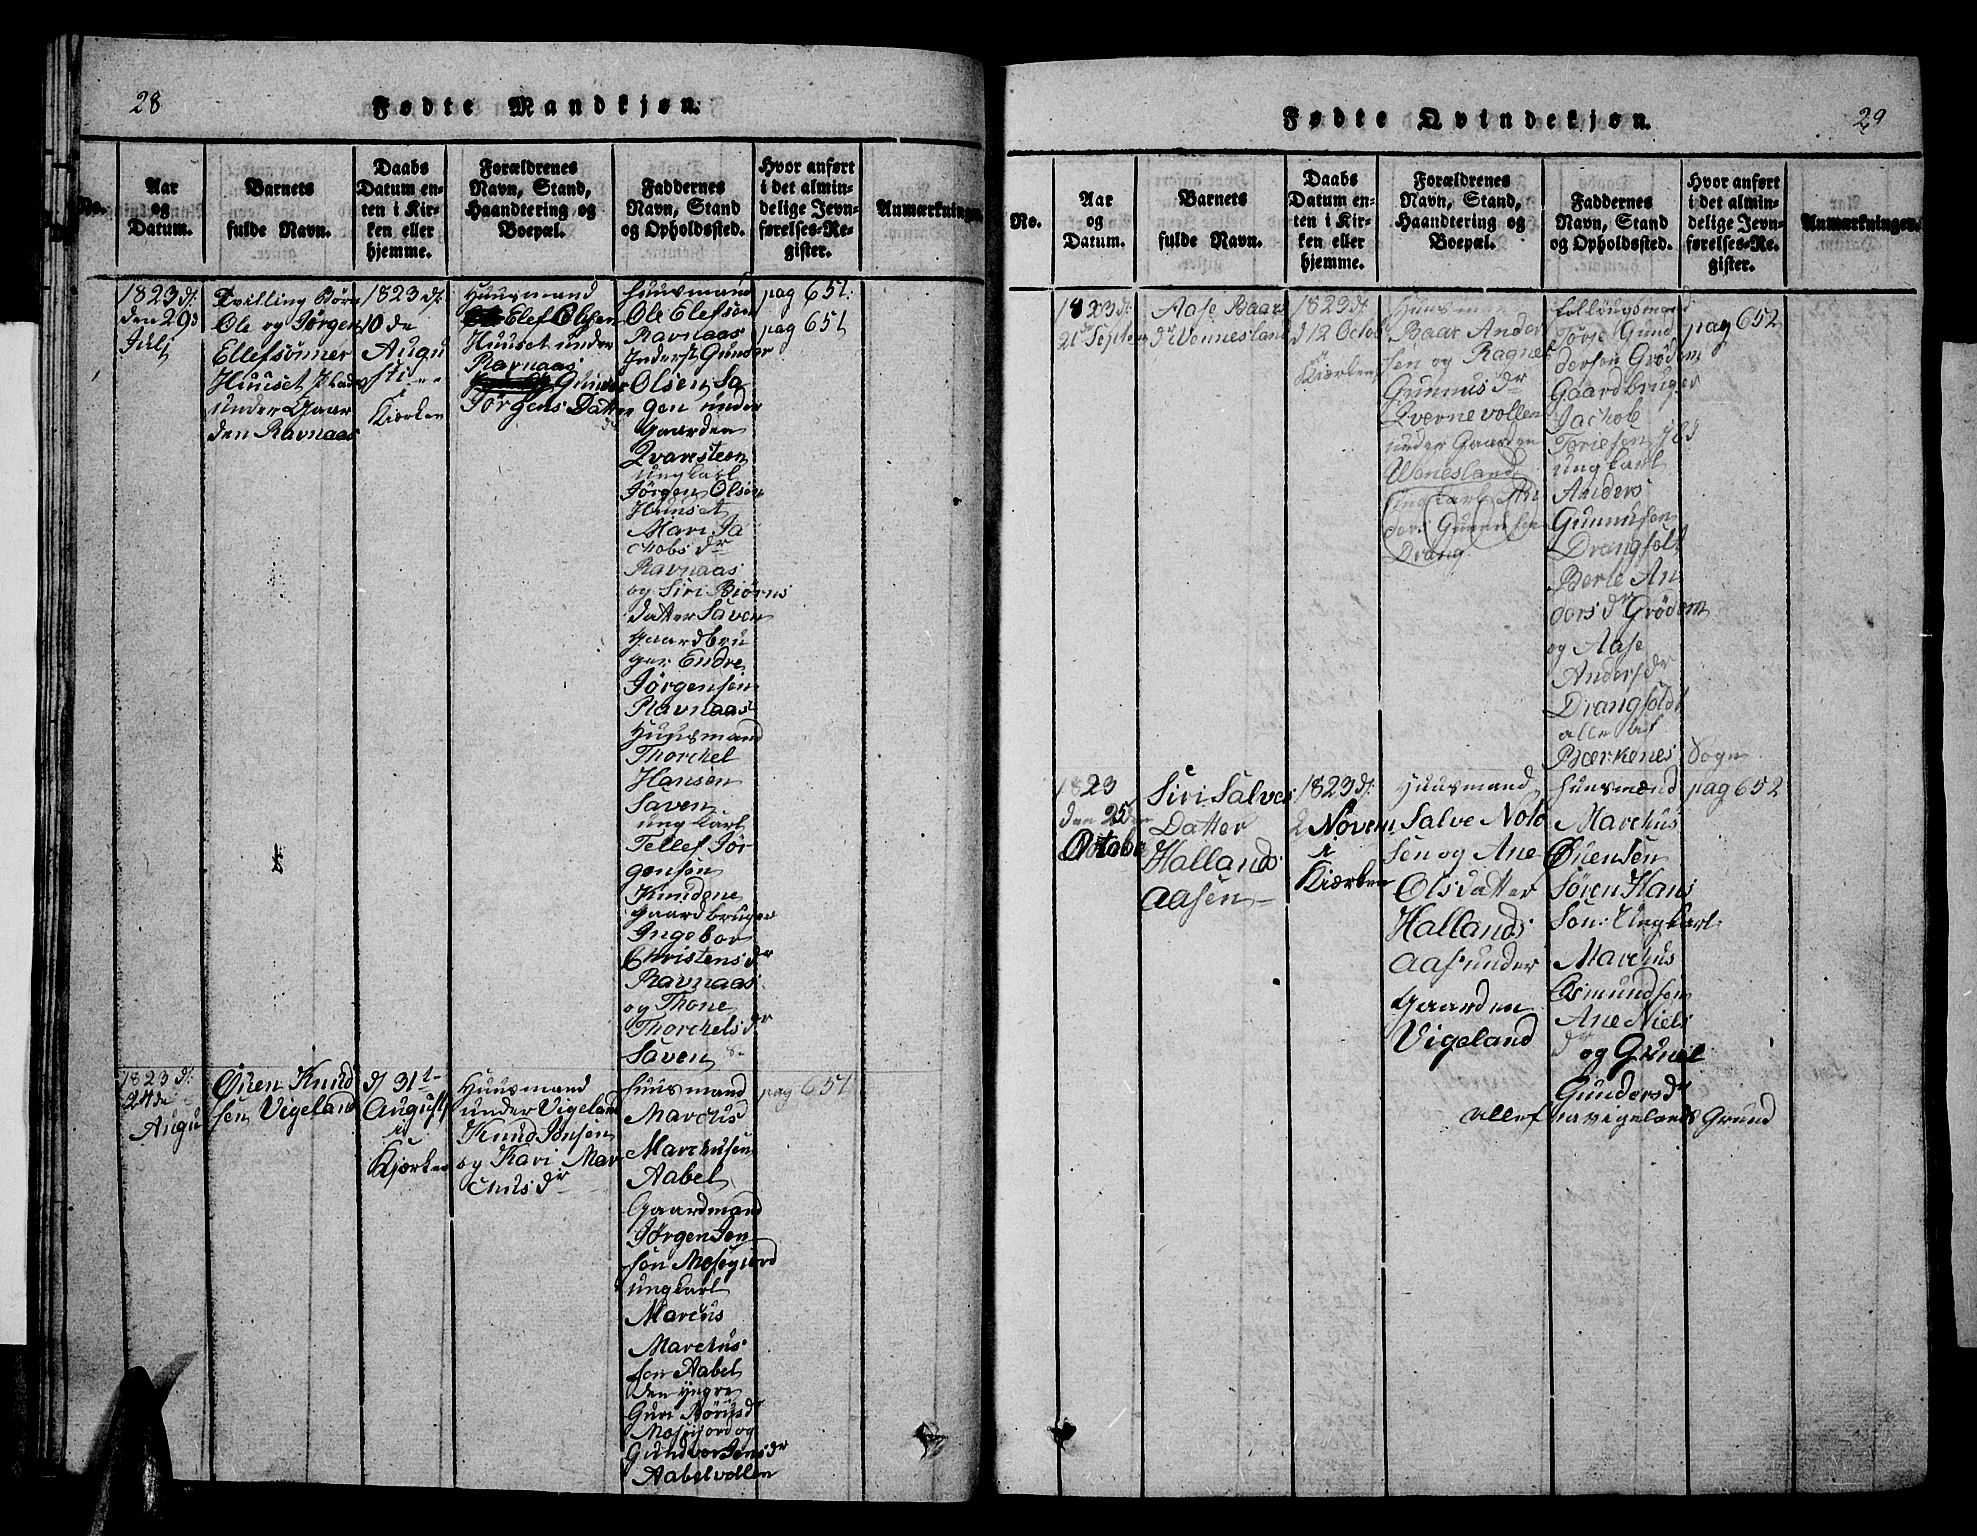 28
Fødte Mandkjøn.
No.
Aar
og
Datum.
Barnets
fulde Navn.
Daabs
Datum en-
ten i Kir-
ken eller
hjemme.
Forældrenes
Navn, Stand,
Haandtering og
Boepæl.
Faddernes
Navn, Stand
og Opholdssted.
Hvor anført
i det almin-
delige Jevn-
førelses-Re-
gister.
Anmærkninger.
1823 d:
den 29d
Julj
Tvilling Børn
Ole og Jørgen
Ellefsønner
Huuset
under Gaar
den Ravnaas
1823 d:
10 de
Augu
sti
i
Kierken
Huusmand
Elef Olsen
Huuset under
Ravnaas
Gunder
Jørgens Datter
Huusmand
Ole Elefsøn
Ravnaas
Inderst Gunder
Olsen Sa
gen under
Gaarden
Qvarsteen
ungkarl
Jørgen Olsen
Huuset
Mari Ja
chobs dr
Ravnaas
og Siri Biørns
datter Saven
Gaardbru
ger Endre
Jørgensen
Ravnaas
Huusmand
Thorchel
Hansen
Saven
ungkarl
Tellef Jør
gensen
Knudene
Gaardbruger
Ingebor
Christens dr
Ravnaas
og Thone
Thorchels dr
Saven
pag 651
pag 651
1823 d:
24de
Augu
Øuen Knud
sen Vigeland
d 31t
August
i
Kjerken
Huusmand
under Vigeland
Knud Jensen
og Kari Mar
chus dr
Huusmand
Marcus
Marchusen
Aabel
Gaardmand
Jørgen Jen
søn Mosegiord
ungkarl
Marcus
Marchus
sen Aabel
den yngre
Guri Børus dr
Mosejord og
Gundvor Jens dr
Aabelvollen
pag 651
Fødte Qvindekjøn.
29
No.
Aar
og
Datum.
Barnets
fulde Navn.
Daabs
Datum en-
ten i Kir-
ken eller
hjemme.
Forældrenes
Navn, Stand,
Haandtering og
Boepæl.
Faddernes
Navn, Stand
og Opholdssted.
Hvor anført
i det almin-
delige Jevn-
førelses-Re-
gister.
Anmærkninger.
1823 d:
21de Septem
Aase Baars
dr Vennesland
1823 d:
d 12 Octob
i
Kierken
Huusm
Baar Ander
sen og Ragnes
Gunnus dr
Qverne vollen
under Gaarden
Wenesland
ungkarl An
ders Gunnusen
Drang
Føllougsmand
Torje Gund
dersen Grødem
Gaardbruger
Jachob
Toriesen
ungkarl
Anders
Gunnusen
Drangsolt
Berte An
ders dr Grødem
og Aase
Anders dr
Drangsoldt
alle af
Bærkenes Sogn
pag 652
1823
den 25de
Octobe
Siri Salves
Datter
Hallands
Aasen
1823 d:
2 Novem
i
Kierken
Huusmand
Salve Nolo
sen og Ane
Olsdatter
Hallands
Aas under
Gaarden
Vigeland
Huusmænd
Marchus
Øuensen
Søren Hans
Søn: Ungkarl
Marchus
Osmundsen
Ane Niels
dr og Gunil
Gunders dr
alle fra Vigelands Grund
pag 652